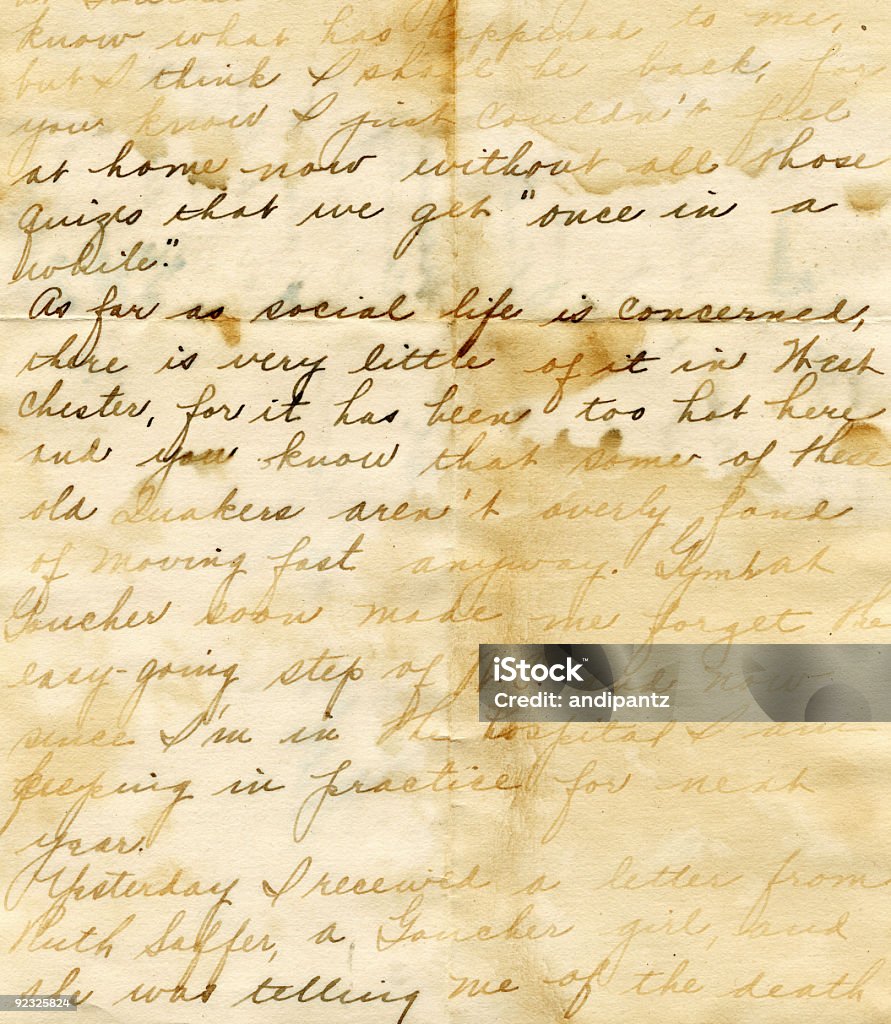 know what has happened to me,
but I think I shall be back, for
you know I just couldn't feel
at home now without all those
quizes that we get "once in a
while."
As far as social life is concerned,
there is very little of it in West
Chester, for it has been too hot here
and you know that some of these
old Quakers aren't overly fond
of moving fast anyway. Gym at
Goucher soon made me forget the
easy-going step of now
since I'm in the hospital I am
keeping in practice for next
year.
Yesterday I received a letter from
Ruth Saffer, a Goucher girl, and
she was telling me of the death
iStock™
Credit: andipantz
92325824